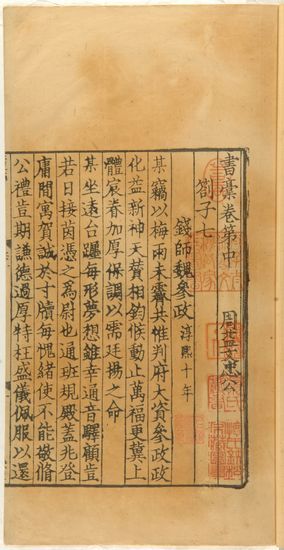 書藁卷第中
周益文忠公
劄子七
錢師魏參政 淳熙十年
某竊以梅雨未霽共惟判府大資參政政
化益新神天賛相鈞候動止萬福更冀上
體宸眷加厚保調以需廷揚之命
某坐遠台躔每形夢想雖幸通音驛顧豈
若日接茵憑之爲尉也通班規殿蓋兆登
庸間寓賀誠於寸牘每愧緒使不能敬脩
公禮豈期謙德過厚特枉盛儀佩服以還